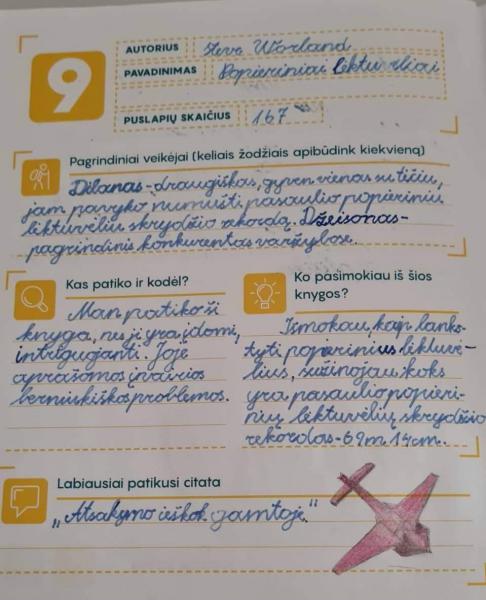 9
AUTORIUS Steve Worland
PAVADINIMAS Popieriniai lėktuvėliai
PUSLAPIŲ SKAIČIUS 167
Pagrindiniai veikėjai (keliais žodžiais apibūdink kiekvieną)
Dilanas - draugiškas, gyven vienas su tėčiu,
jam pavyko numušti pasaulio popierinių
lėktuvėlių skrydžio rekordą. Džeisonas -
pagrindinis konkurentas varžybose.
Kas patiko ir kodėl?
Man patiko ši
knyga, nes ji yra įdomi,
intriguojanti. Joje
aprašomos įvairios
berniukiškos problemos.
Ko pasimokiau iš šios
knygos?
Išmokau, kaip lanks-
tyti popierinius lėktuvė-
lius, sužinojau, koks
yra pasaulio popieri-
nių lėktuvėlių skrydžio
rekordas - 69m 14cm.
Labiausiai patikusi citata
„Atsakymo ieškok gamtoje."